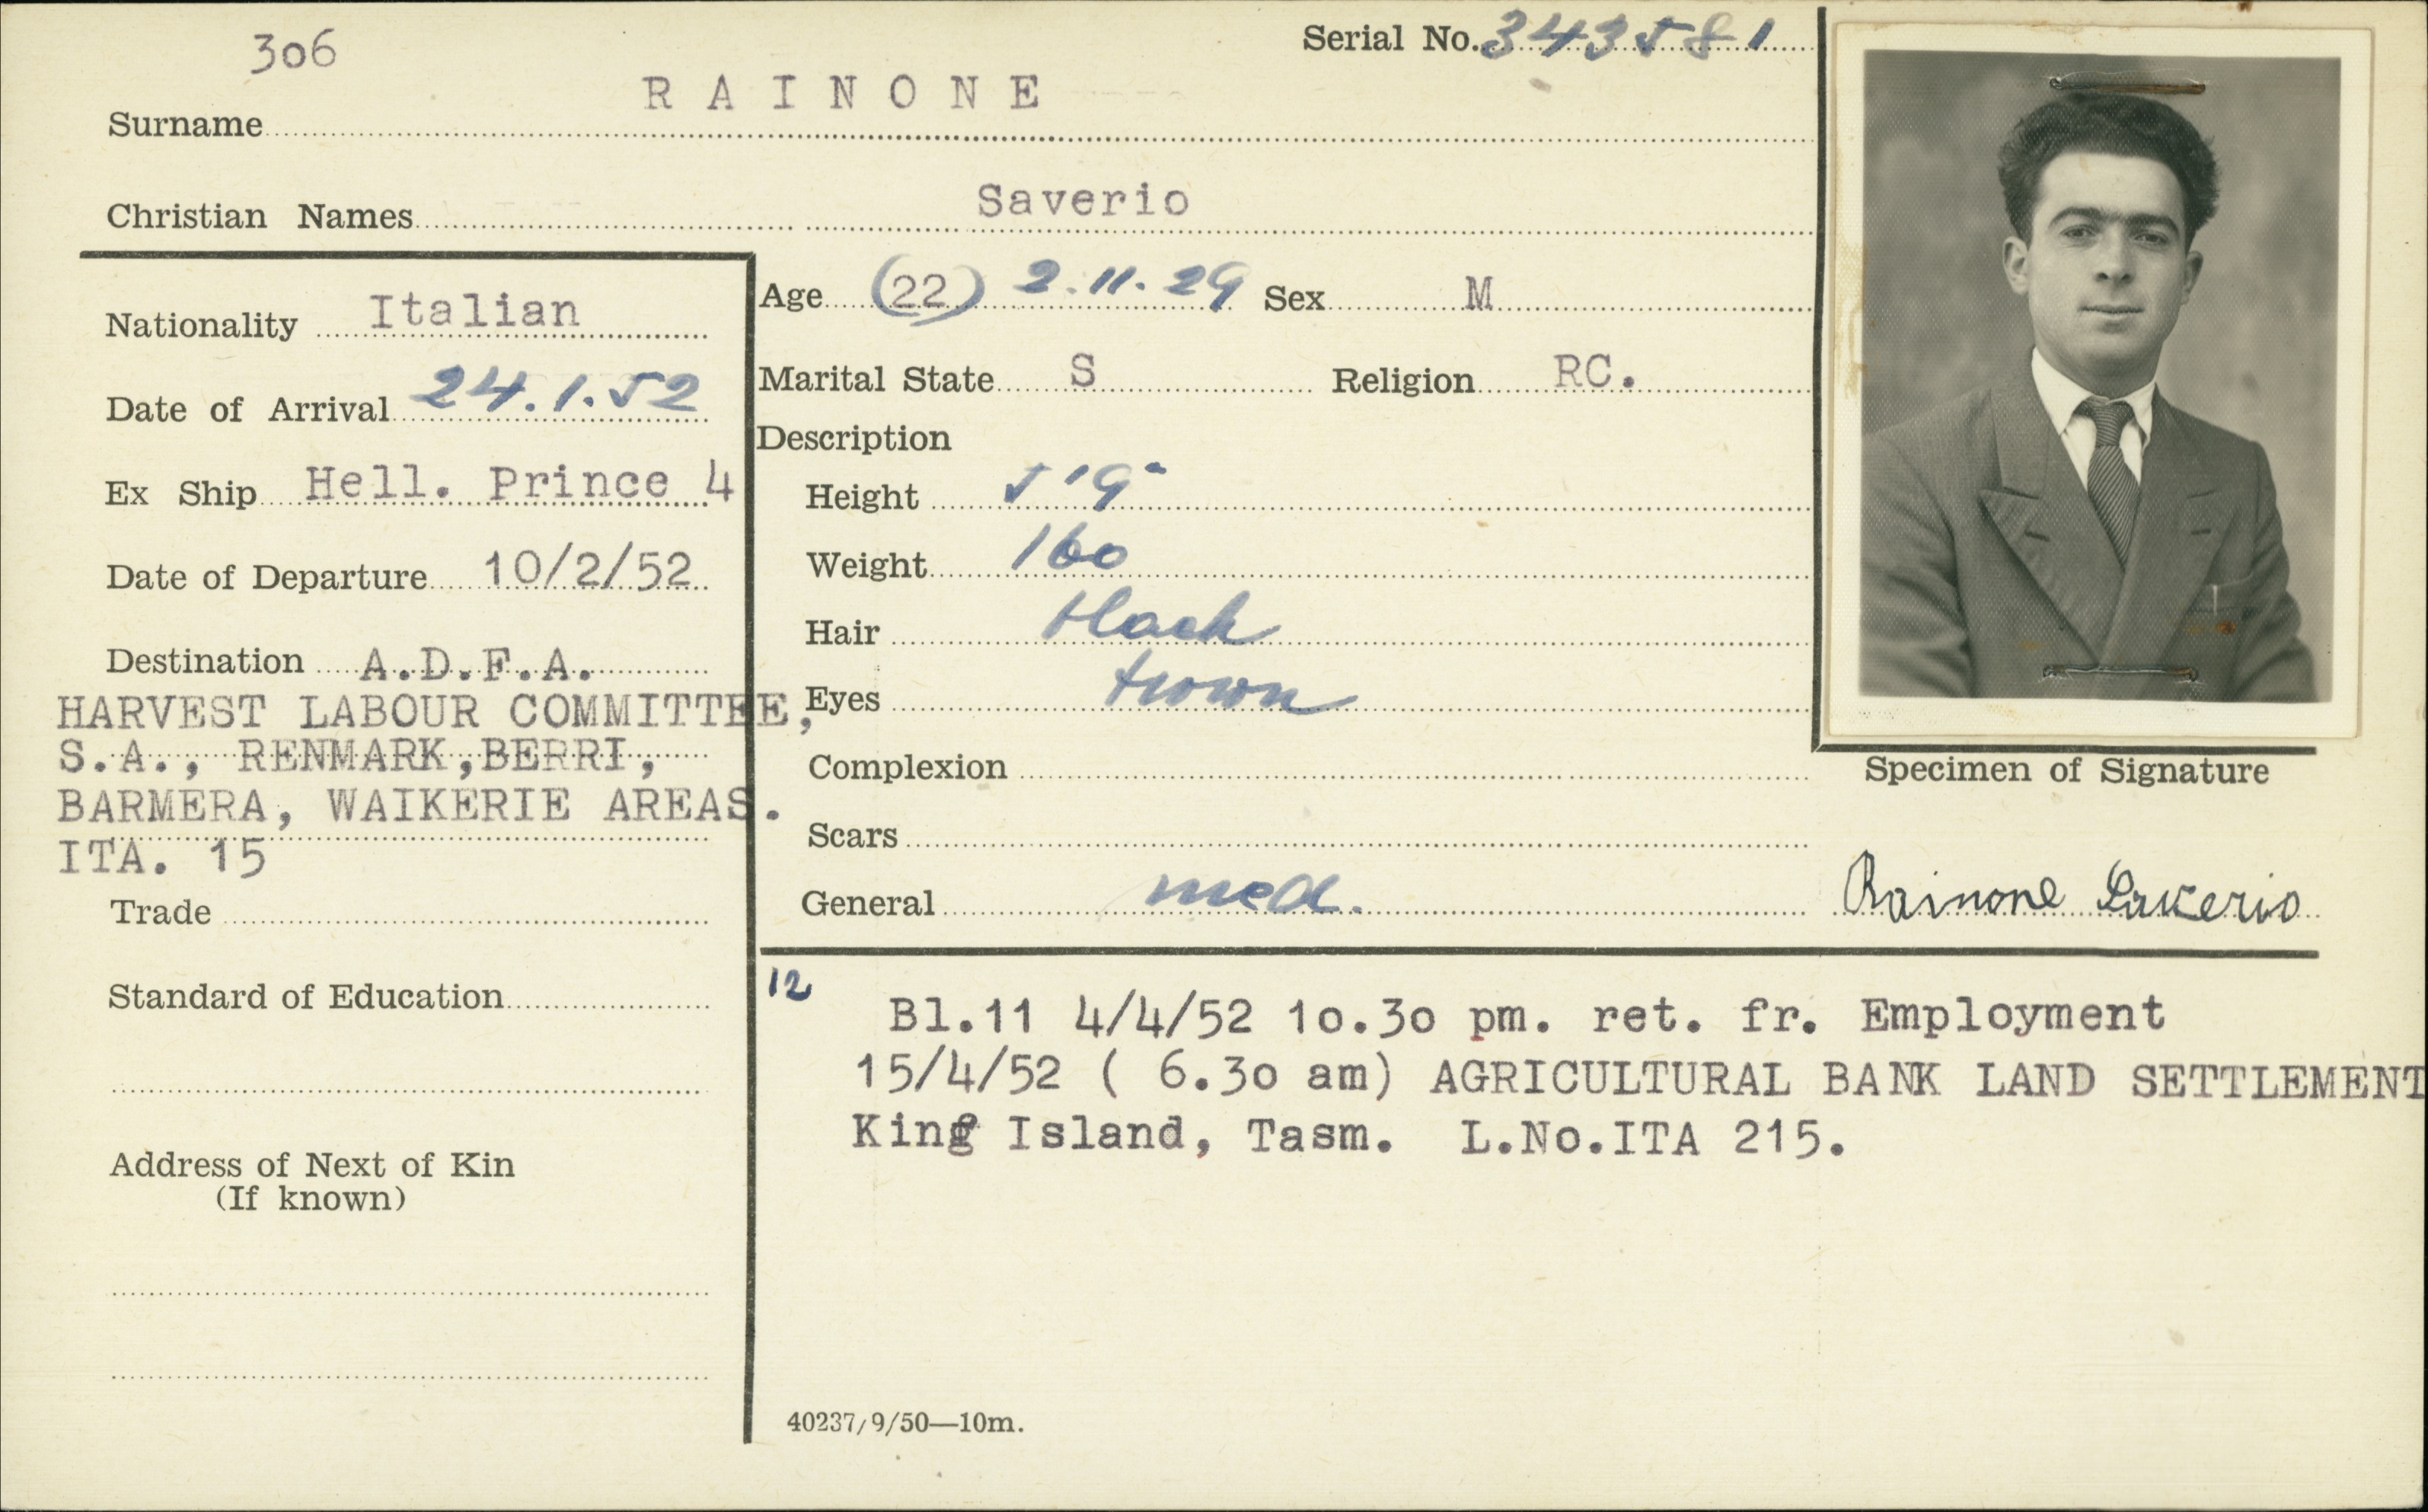 306
Serial No. 343581
Surname RAINONE
Christian Names Saverio
Nationality Italian
Date of Arrival 24.1.52
Ex Ship Hell. Prince 4
Date of Departure 10/2/52
Destination A.D.F.A.
HARVEST LABOUR COMMITTEE,
S.A., RENMARK,BERRI,
BARMERA, WAIKERIE AREAS.
ITA. 15
Trade
Standard of Education
Address of Next of Kin
(If known)
Age (22) 2.11.29 Sex M
Marital State S Religion RC.
Description
Height 5'9"
Weight 160
Hair black
Eyes brown
Complexion
Scars
General med.
Specimen of Signature
Rainone Saverio
12
Bl.11 4/4/52 10.30 pm. ret. fr. Employment
15/4/52 ( 6.30 am) AGRICULTURAL BANK LAND SETTLEMENT
King Island, Tasm. L.No.ITA 215.
40237/9/50—10m.